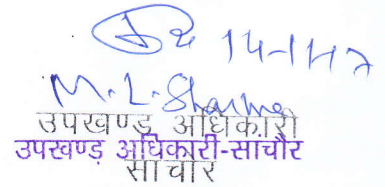 M. L. Sharma
उपखण्ड अधिकारी
उपखण्ड़ अधिकारी-साचौर
साचोर